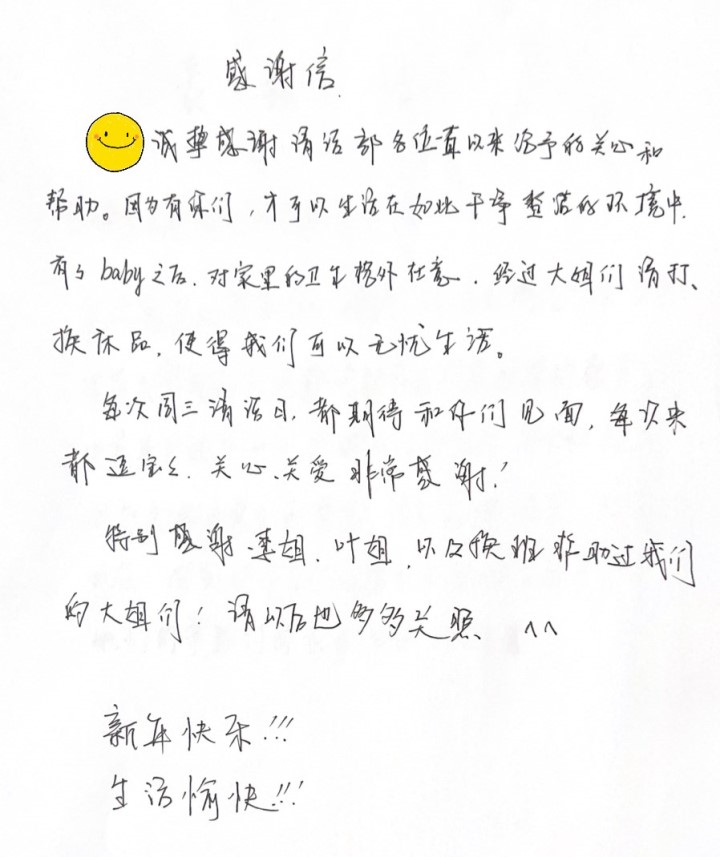 感谢信
诚挚感谢清洁部各位一直以来给予的关心和
帮助。因为有你们，才可以生活在如此干净整洁的环境中.
有了baby之后.对家里的卫生格外在意.经过大姐们清扫、
换床品,使得我们可以无忧生活。
每次周三清洁日,都期待和你们见面,每次来
都逗宝宝.关心、关爱 非常感谢!
特别感谢李姐.叶姐,以及换班帮助过我们
的大姐们!请以后也多多关照 ^^
新年快乐!!!
生活愉快!!!